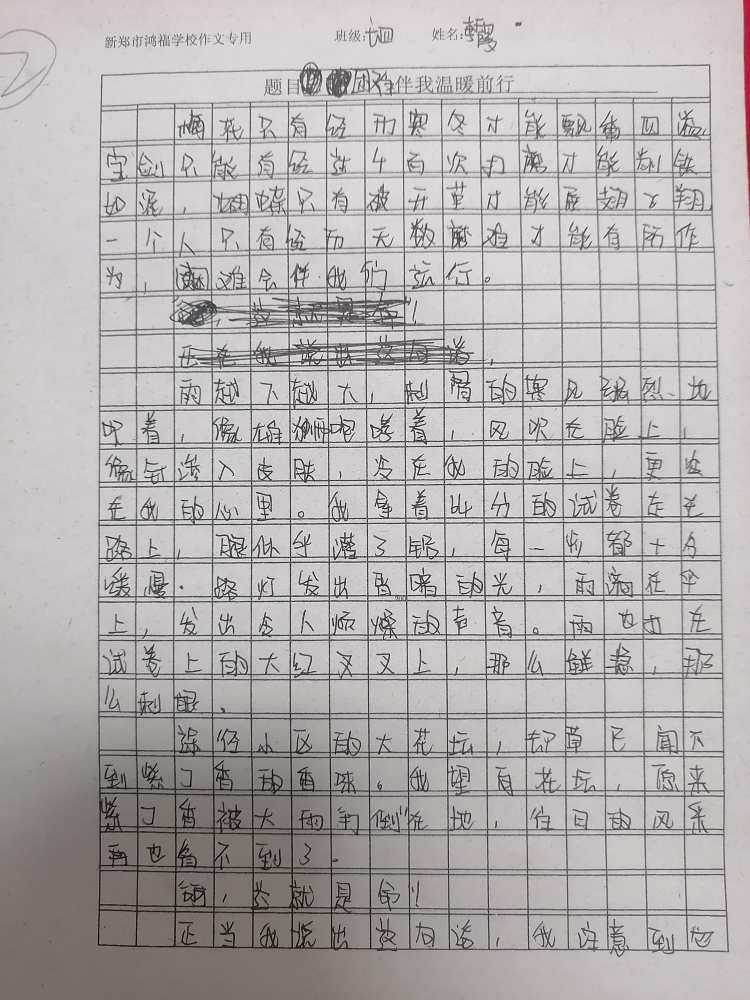 2
新郑市鸿福学校作文专用 班级:七四 姓名:
题目 困难伴我温暖前行
梅花只有经历寒冬才能飘香四溢
宝剑只能有经过千百次打磨才能削铁
如泥，蝴蝶只有破开茧才能展翅飞翔
一个人只有经历无数磨难才能有所作
为，困难会伴我们远行。
雨越下越大，刺骨的寒风强烈地
吹着，像雄狮咆哮着，风吹在脸上，
像针渗入皮肤，没在我的脸上，更没
在我的心里。我拿着64分的试卷走在
路上，腿似乎灌了铅，每一步都十分
缓慢。路灯发出昏暗的光，雨滴在伞
上，发出令人烦燥的声音。雨也打在
试卷上的大红叉叉上，那么鲜艳，那
么刺眼。
途径小区的大花坛，却草已闻不
到紫丁香的香味。我望向花坛，原来
紫丁香被大雨打倒在地，往日的风采
再也看不到了。
，这就是命！
正当我说出这句话，我注意到